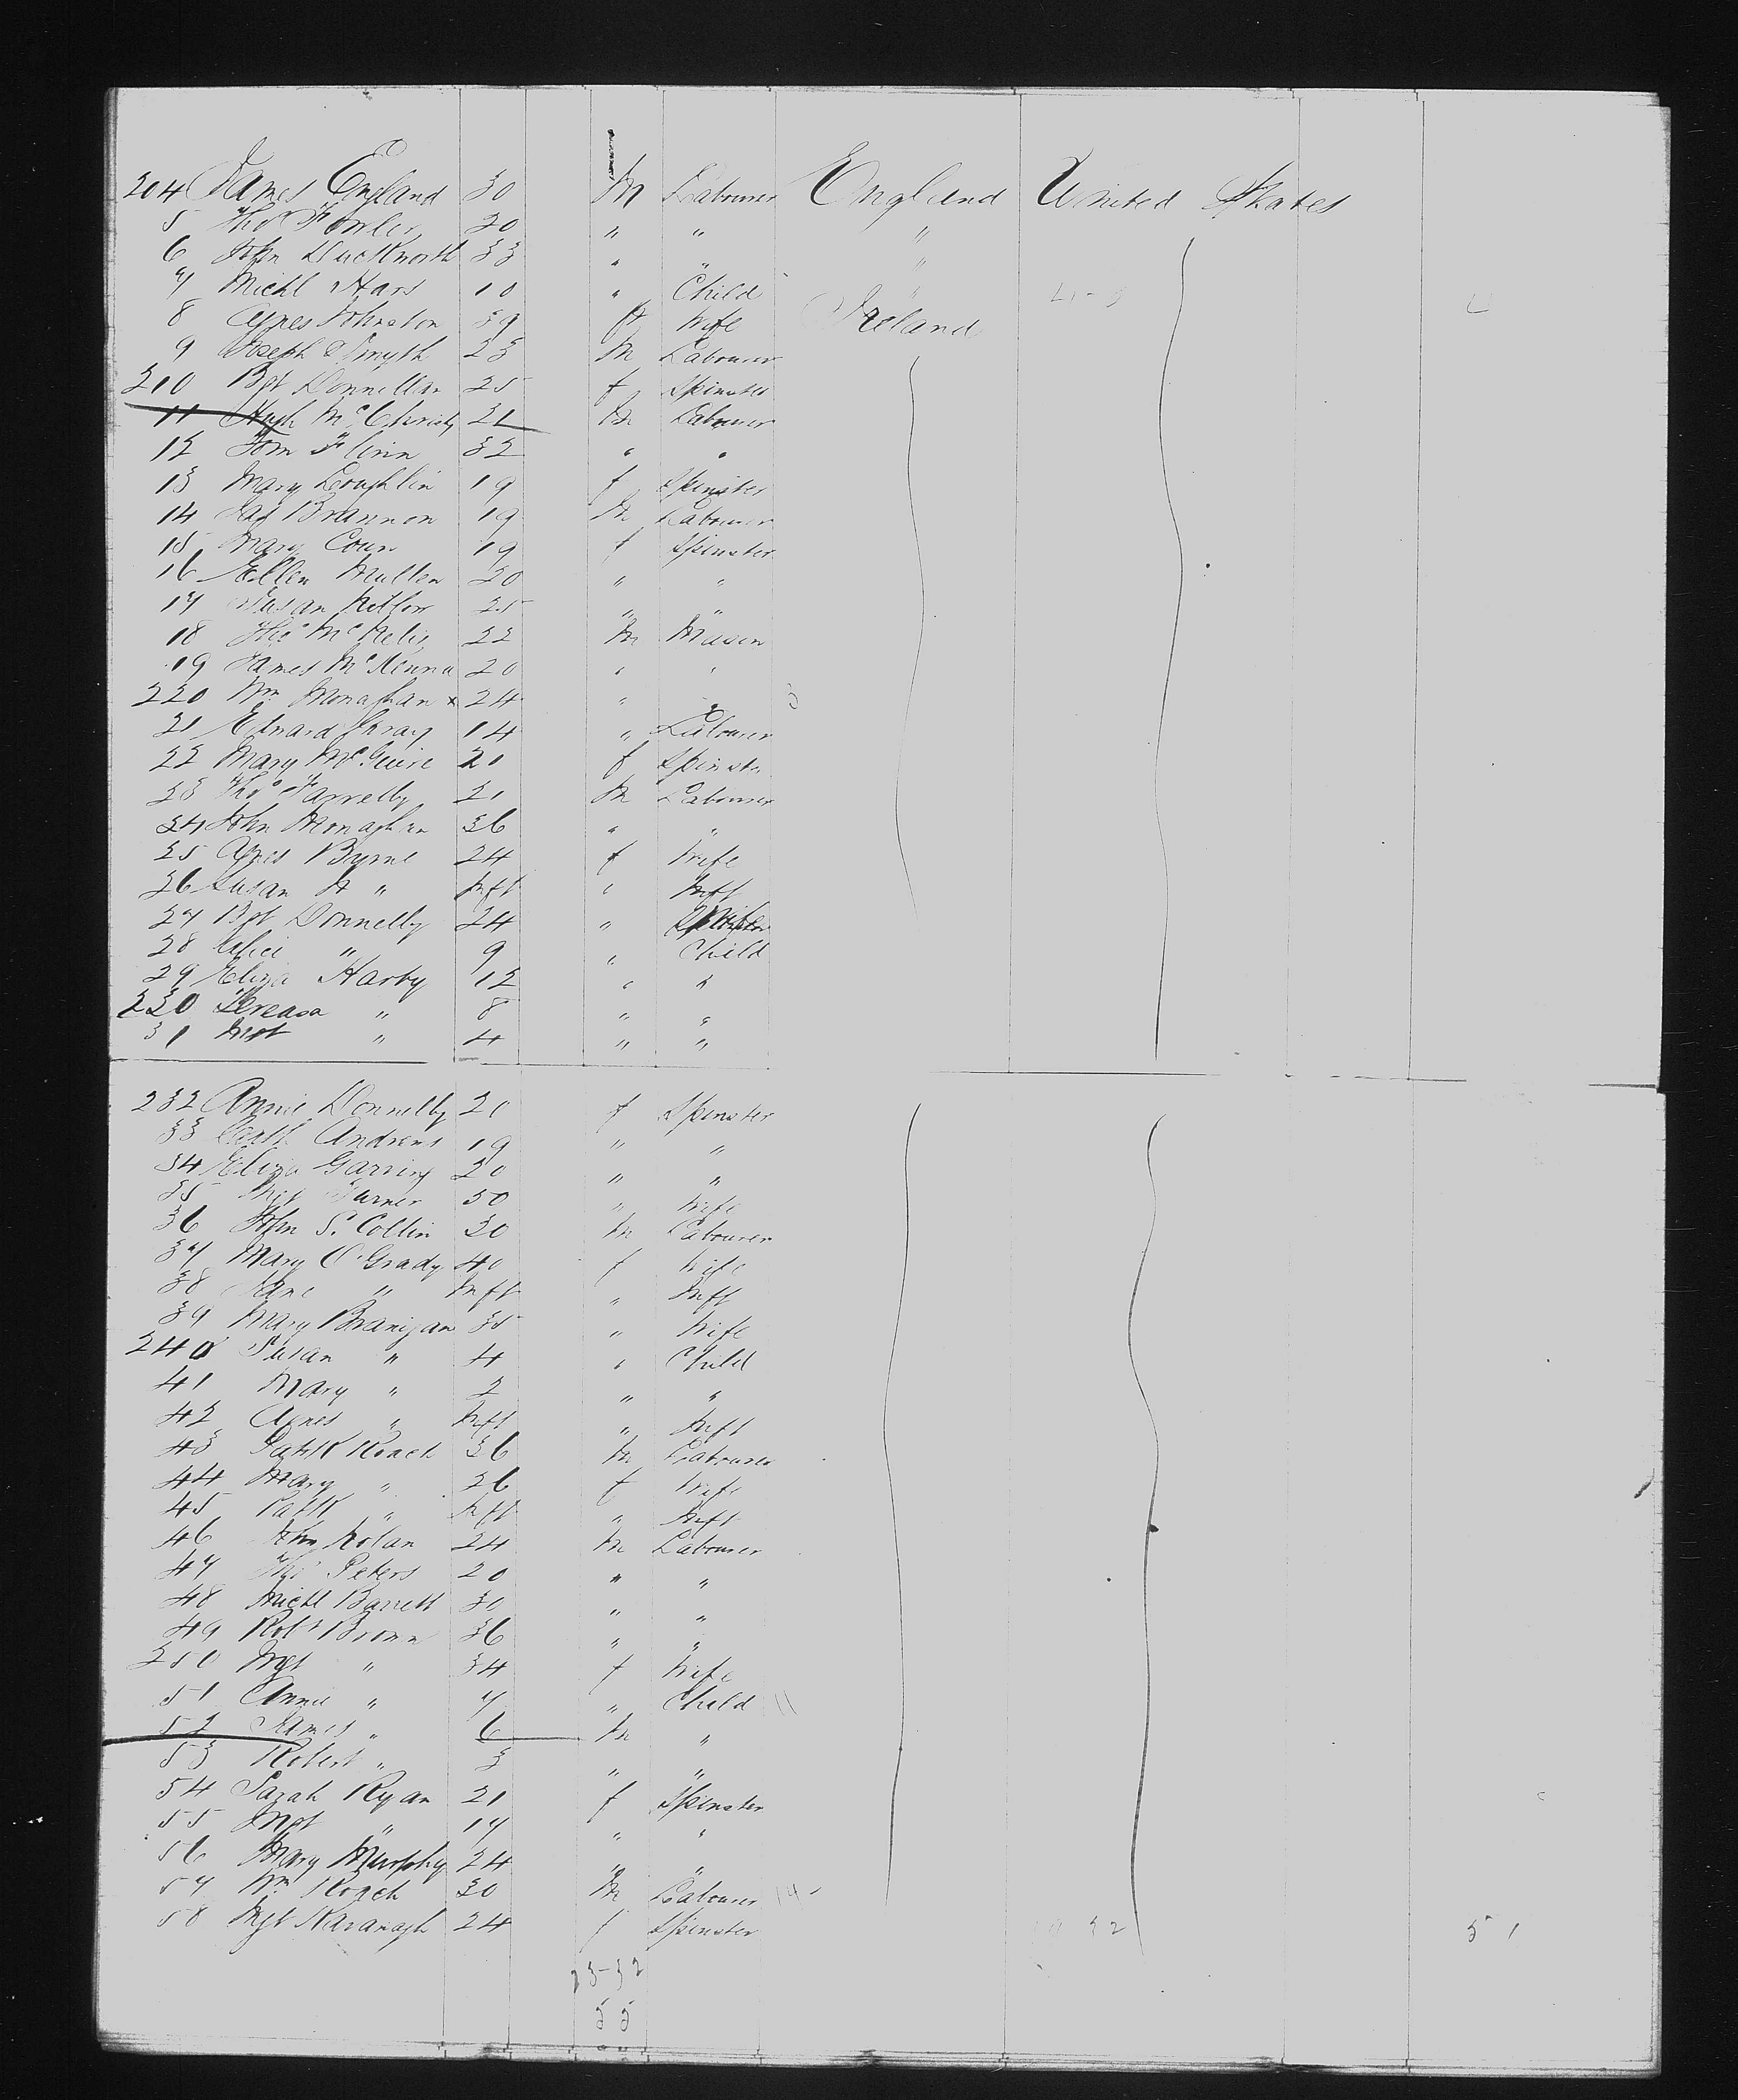 204 James England 30 M Labourer England United States
5 Thos Fowler 20 " " "
6 John Duckworth 33 " " "
7 Michl Hars 10 " Child "
8 Agnes Johnston 39 f Wife Ireland
9 Joseph Smyth 23 M Labourer
210 Bgt Donnellan 25 f Spinster
11 Hugh McChristy 21 M Labourer
12 Tom Flinn 32 " "
13 Mary Loughlin 19 f Spinster
14 Jas Brannon 19 M Labourer
15 Mary Coun 19 f Spinster
16 Ellen Mullen 20 " "
17 Susan 25 " "
18 Thos 22 M Mason
19 James McKenna 20 " "
220 Wm Monaghan x 24 " "
21 Edward Gray 14 " Labourer
22 Mary McGuire 21 f Spinster
23 Thos Farrelly 21 M Labourer
24 John Monaghan 36 " "
25 Agnes Byrne 24 f Wife
26 Susan A " Inft " Inft
27 Bgt Donnelly 24 "
28 Alice " 9 " Child
29 Eliza Harby 12 " "
230 Thereasa " 8 " "
31 Mgt " 4 " "
232 Annie Donnelly 20 f Spinster
33 Cath Andrews 19 " "
34 Eliza 20 " "
35 Mgt Turner 50 " Wife
36 John S. Collin 30 M Labourer
37 Mary O'Grady 40 f Wife
38 Jane " Inft " Inft
39 Mary Branigan 35 " Wife
240 Susan " 4 " Child
41 Mary " 2 " "
42 Agnes " Inft " Inft
43 Patk Roach 36 M Labourer
44 Mary " 26 f Wife
45 Patk " Inft " Inft
46 John Nolan 24 M Labourer
47 Thos Peters 20 " "
48 Michl Barrett 30 " "
49 Robt Brown 36 " "
250 Mgt " 34 f Wife
51 Annie " 7 " Child
52 James " 6 M "
53 Robert " 3 " "
54 Sarah Ryan 21 f Spinster
55 Mgt " 17 " "
56 Mary Murphy 24 " "
57 Wm Roach 30 M Labourer
58 Mgt Kavanagh 24 f Spinster
32 51
23-32
55